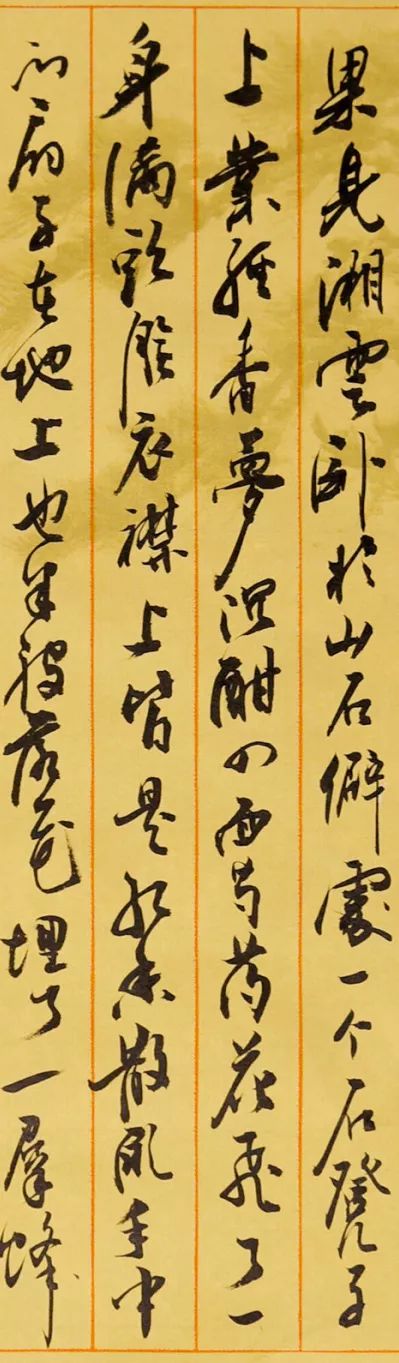 果見湘雲卧於山石僻處一个石凳子
上業經香夢沉酣四面芍药花飛了一
身满头臉衣襟上皆是红香散乱手中
的扇子在地上也半被落花埋了一羣蜂